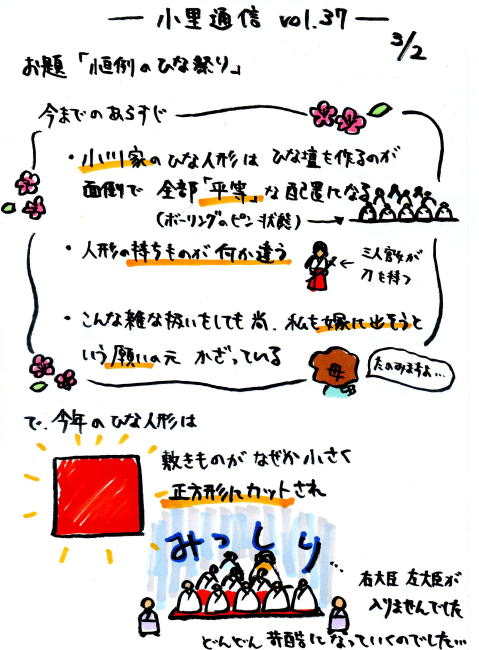 小里通信 vol.37
3/2
お題「恒例のひな祭り」
今までのあらすじ
・小川家のひな人形は ひな壇を作るのが
面倒で 全部「平等」な配置になる
(ボーリングのピン状態)
・人形の持ちものが何か違う
← 三人官女が
刀を持つ
・こんな雑な扱いをしても尚、私を嫁に出そうと
いう願いの元 かざっている
母
たのみますよ…
で、今年のひな人形は
敷きものが なぜか小さく
正方形にカットされ
みっしり
…右大臣 左大臣が
入りませんでした
どんどん 苛酷になっていくのでした…